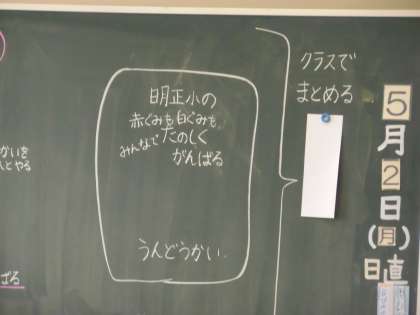 クラスで
まとめる
5月2日(月)
日直
明正小の
赤ぐみも白ぐみも
みんなでたのしく
がんばる
うんどうかい
かいを
んとやる
ばる